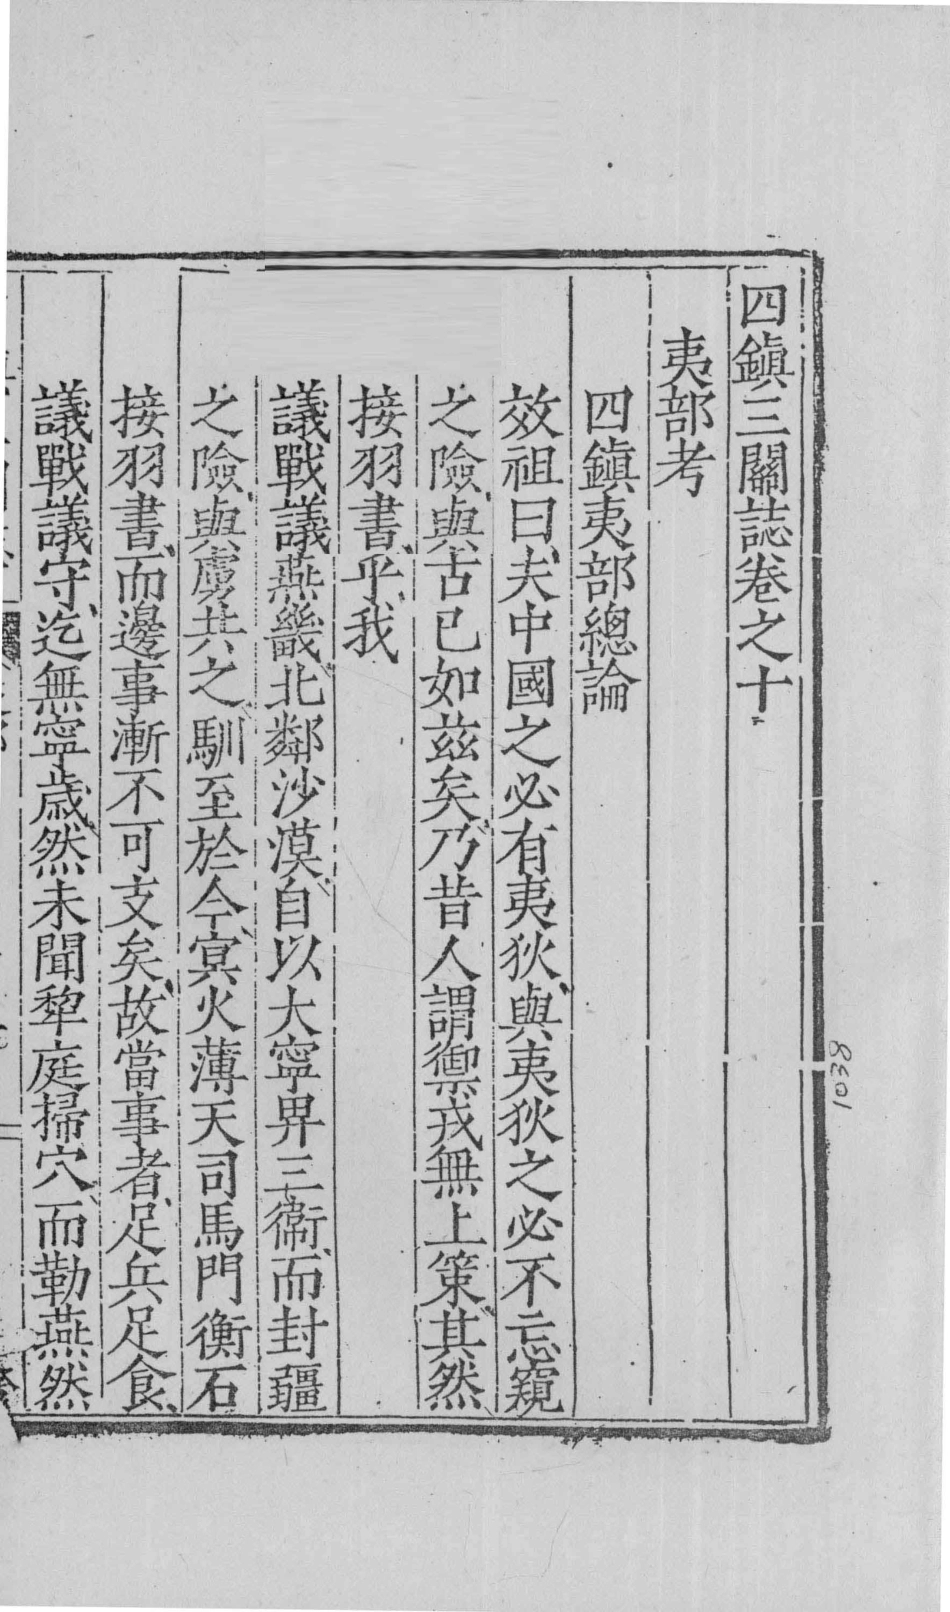 四鎮三關誌卷之十
夷部考
四鎮夷部總論
效祖曰夫中國之必有夷狄與夷狄之必不忘窺
之險與古已如茲矣乃昔人謂禦戎無上策其然
接羽書乎我
議戰議燕畿北鄰沙漠自以大寧畀三衛而封疆
之險與虜共之馴至於今寘火薄天司馬門衡石
接羽書而邊事漸不可支矣故當事者足兵足食
議戰議守迄無寧歲然未聞犂庭掃穴而勒燕然
10338